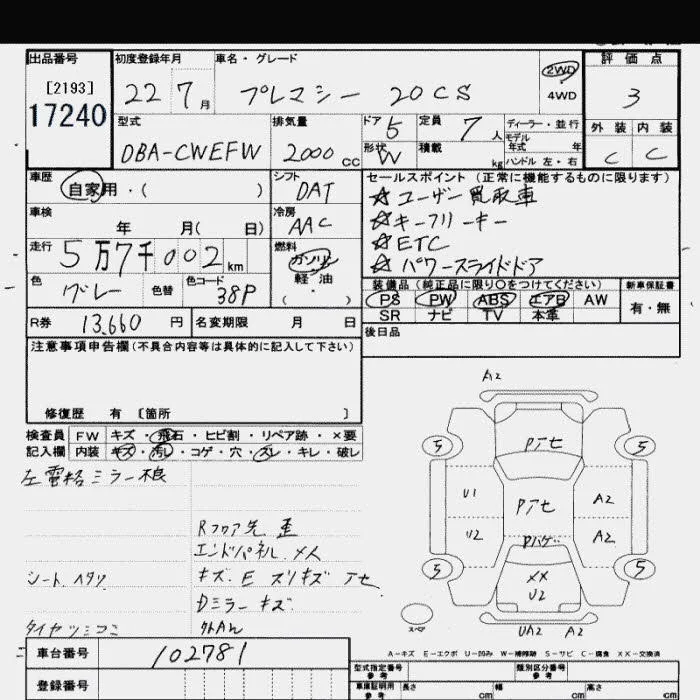 出品番号 初度登録年月 車名・グレード 評価点
[2193]
17240
22 7月 プレマシー 20CS 2WD 4WD 3
型式 排気量 ドア 5 定員 7人 ディーラー・並行 外装 内装
モデル年式 年
DBA-CWEFW 2000cc 形状 W 積載 kg ハンドル 左・右 C C
車歴 シフト セールスポイント (正常に機能するものに限ります)
自家用・( ) DAT ☆ユーザー買取車
車検 冷房 ☆キーフリーキー
年 月( 日) AAC ☆ETC
走行 燃料 ☆パワースライドドア
5万7千002km ガソリン
軽油
( ・ )
色 グレー 色替 色コード 38P
装備品 (純正品に限り○をつけてください) 新車保証書
PS PW ABS エアB AW 有・無
SR ナビ TV 本革
R券 13,660円 名変期限 月 日 後日品
注意事項申告欄(不具合内容等は具体的に記入して下さい)
修復歴 有 〔箇所 〕
検査員 FW キズ・飛石・ヒビ割・リペア跡・×要
記入欄 内装 キズ・汚レ・コゲ・穴・スレ・キレ・破レ
左電格ミラー
Rフロア先
エンドパネル
シート ヘタリ
キズ E スリキズ
Dミラーキズ
車台番号 102781
登録番号
A2
5 5
Pアセ
U1 Pアセ A2
U2 A2
5 XX 5
U2
スペア
UA2 A2
A-キズ E-エクボ U-凹み W-補修跡 S-サビ C-腐食 XX-交換済
型式指定番号 参考 類別区分番号 参考
車庫証明用 参考 長さ cm 幅 cm 高さ cm